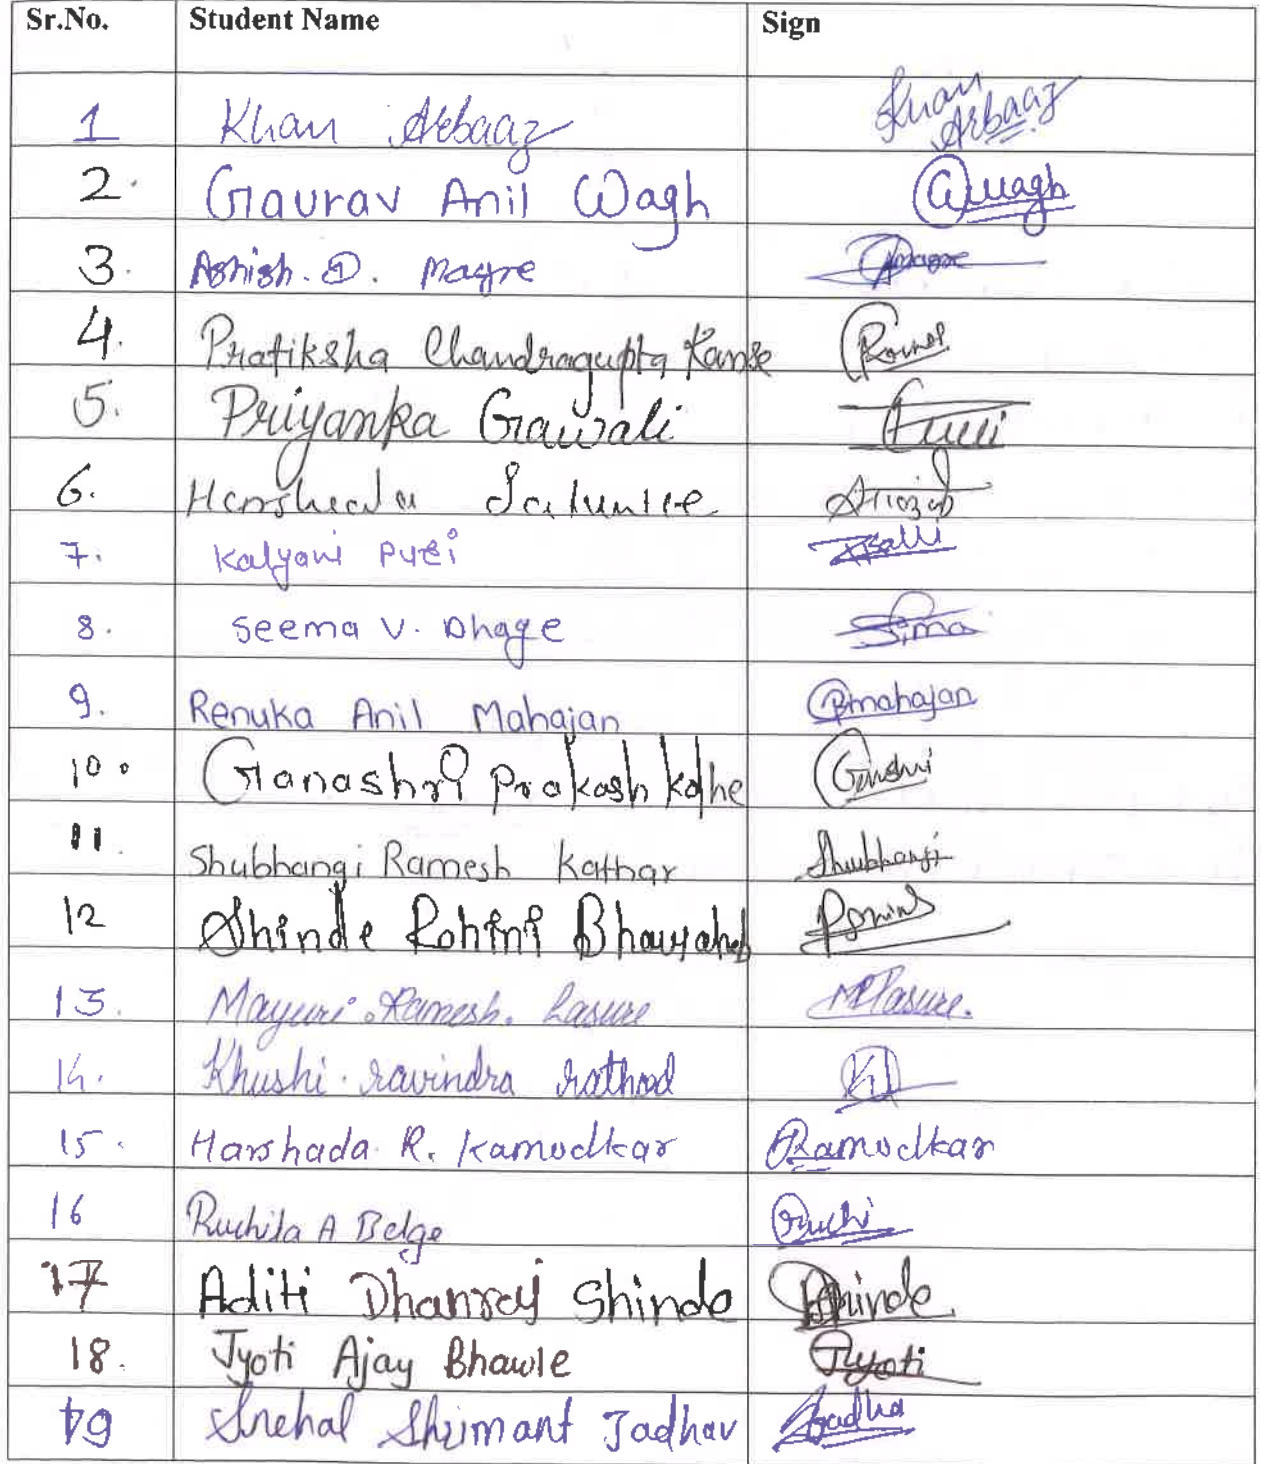 Sr.No. Student Name Sign
1 Khan Arbaaz Khan Arbaaz
2. Gaurav Anil Wagh Gwagh
3. Ashish. D. Magre Magre
4. Pratiksha Chandragupta Kanse
5. Priyanka Gawali
6. Harshada Salunke
7. Kalyani Puri
8. Seema V. Dhage Sima
9. Renuka Anil Mahajan Rmahajan
10. Ganashri Prakash Kolhe
11. Shubhangi Ramesh Kathar Shubhangi
12 Shinde Rohini Bhausaheb
13. Mayuri. Ramesh. Lasure MRlasure.
14. Khushi. ravindra rathod
15. Harshada. R. Kamodkar Ramodkar
16 Ruchita A Belge Ruchi
17 Aditi Dhanraj Shinde Shinde
18. Jyoti Ajay Bhawle Jyoti
19 Snehal Shrimant Jadhav Jadha